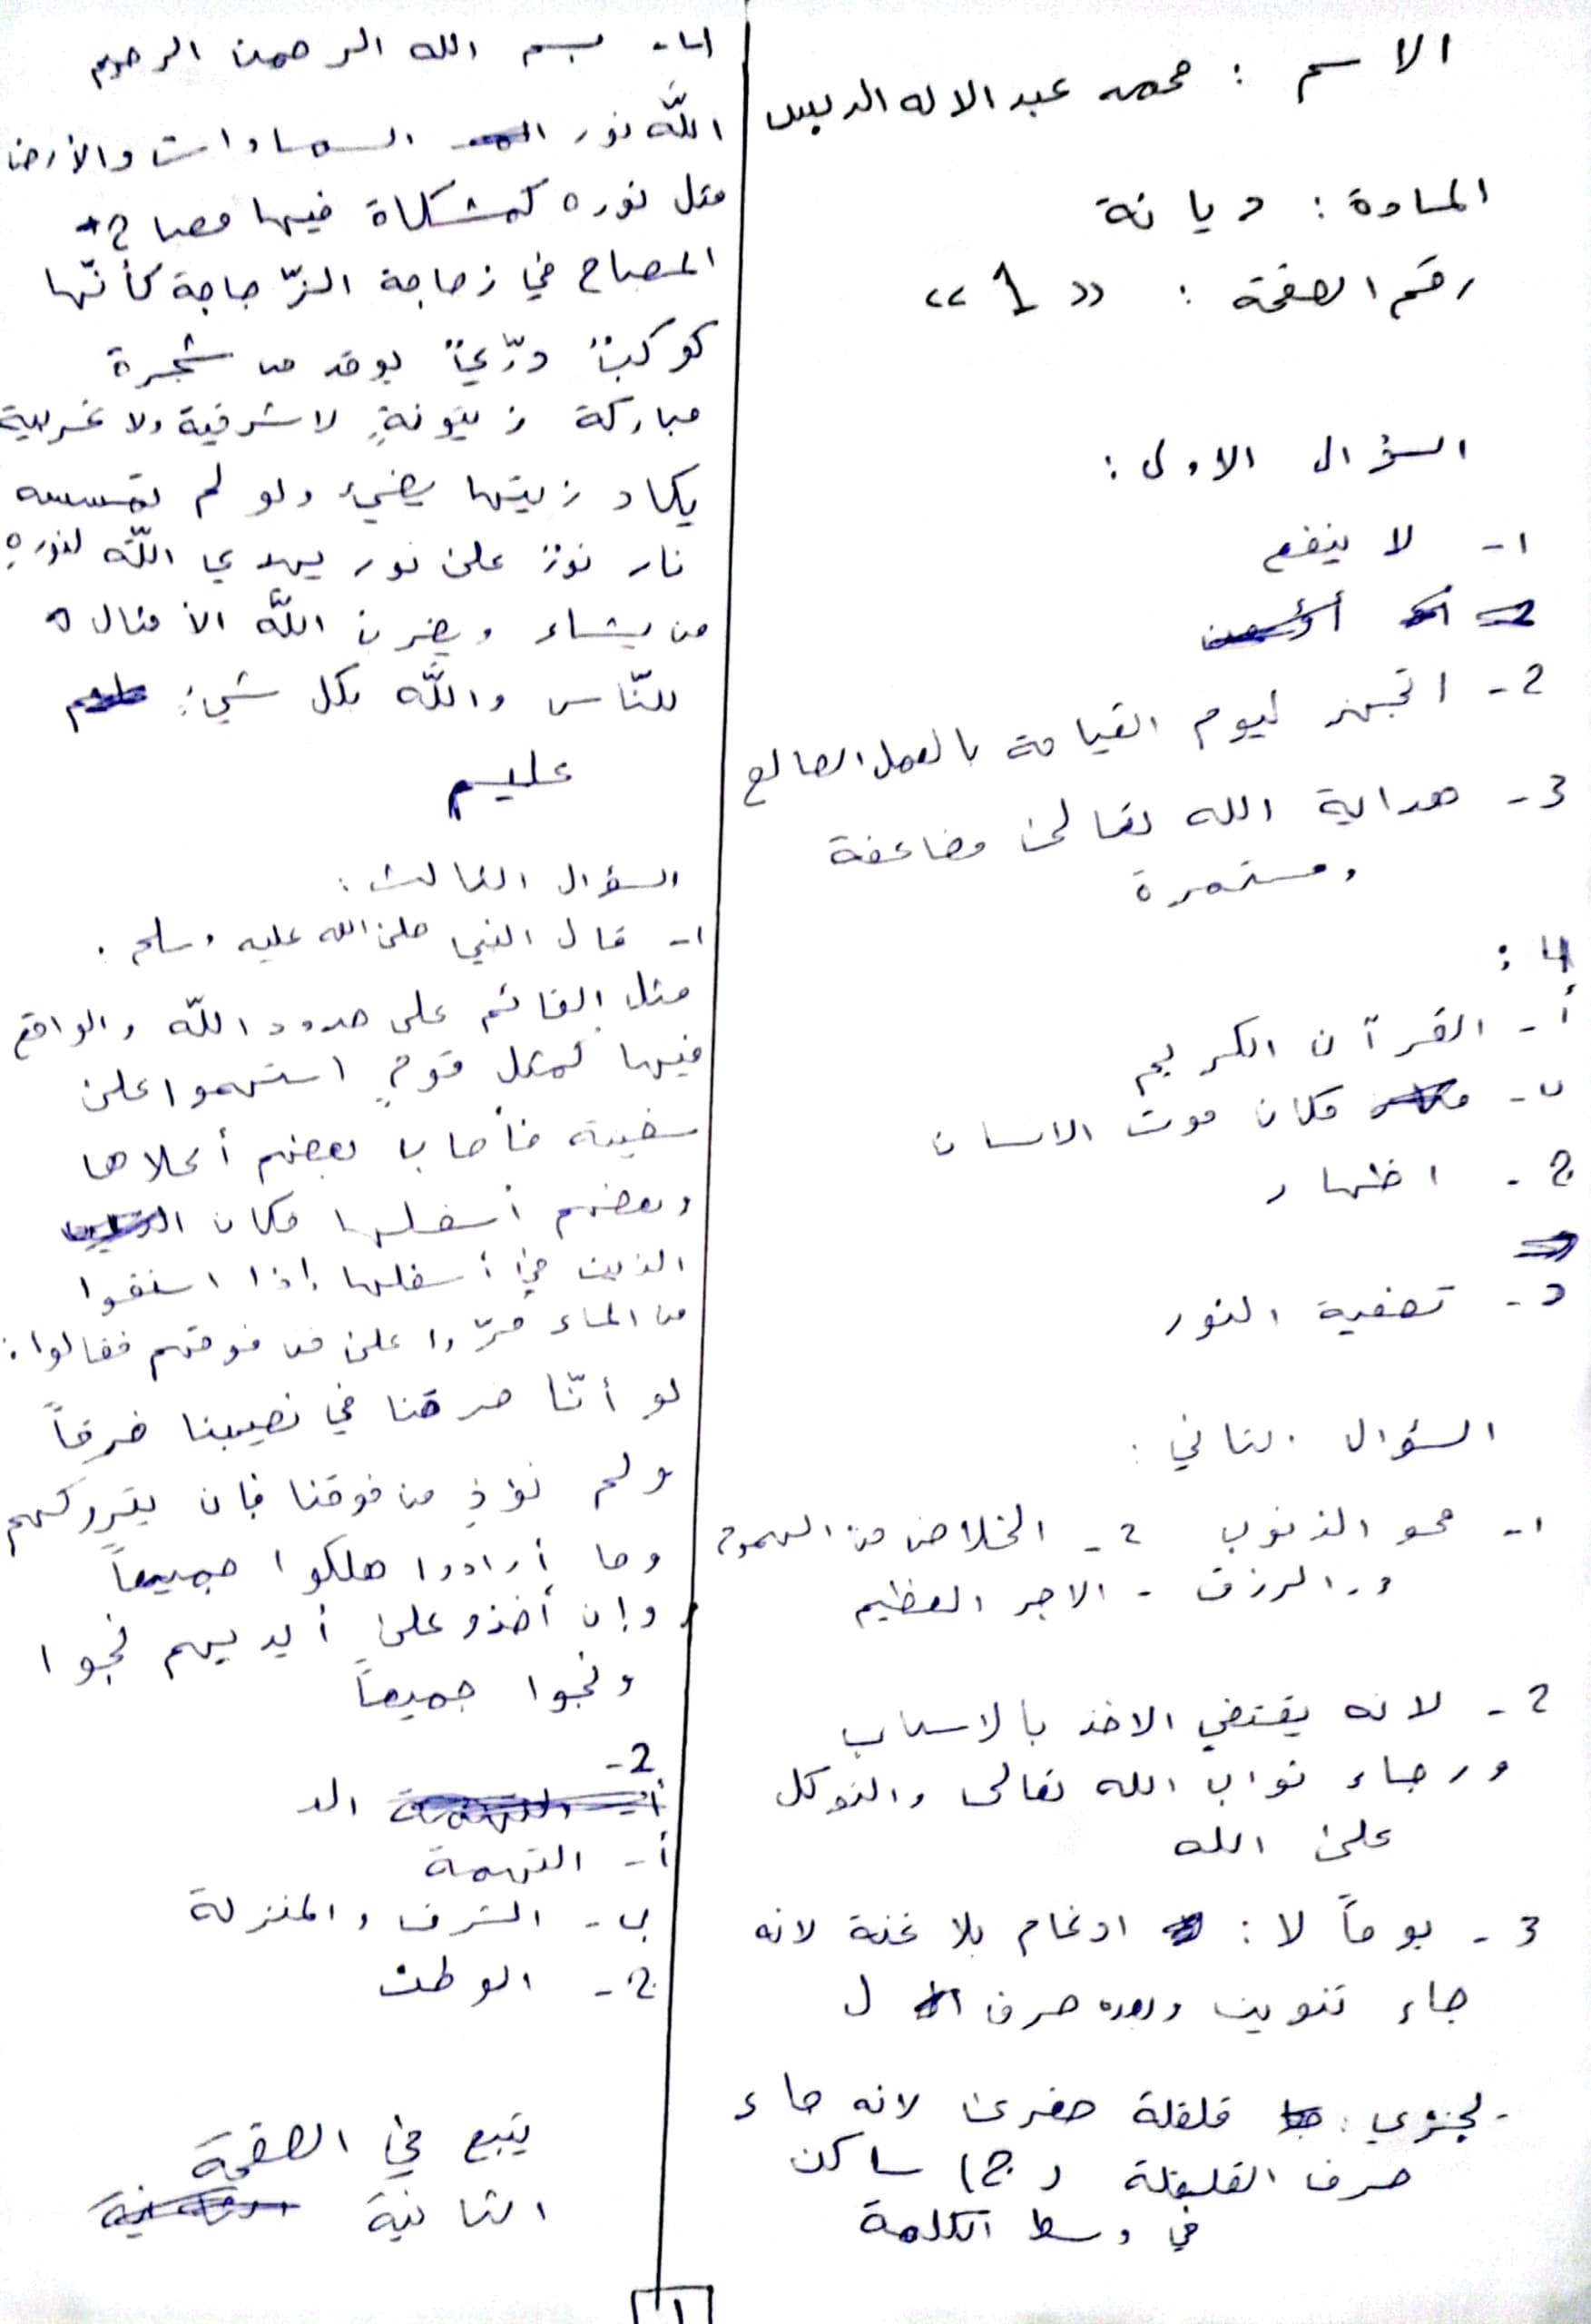 الاسم : محمد عبد الاله الدبس
المادة : ديانة
رقم الصفحة : « 1 »
السؤال الاول :
1- لا ينفع
2- اتجهز ليوم القيامة بالعمل الصالح
3- هداية الله تعالى مضاعفة
ومستمرة
4 :
أ- القرآن الكريم
ب- مكان موت الانسان
ج- اظهار
د- تصفية النور
السؤال الثاني :
1- محو الذنوب 2- الخلاص من الهموم
و الرزق - الاجر العظيم
2- لانه يقتضي الاخذ بالاسباب
ورجاء ثواب الله تعالى والتوكل
على الله
3- يوماً لا : ادغام بلا غنة لانه
جاء تنوين وبعده حرف ل
- لجزي : قلقلة صغرى لانه جاء
حرف القلقلة (ج) ساكن
في وسط الكلمة
4- بسم الله الرحمن الرحيم
اللّه نور السماوات والأرض
مثل نوره كمشكاة فيها مصباح
المصباح في زجاجة الزّجاجة كأنّها
كوكبٌ درّيٌ يوقد من شجرة
مباركة زيتونةٍ لا شرقية ولا غربية
يكاد زيتها يضيء ولو لم تمسسه
نار نورٌ على نور يهدي اللّه لنورهِ
من يشاء ويضرب اللّه الأمثال
للنّاس واللّه بكل شيءٍ
عليم
السؤال الثالث :
1- قال النبي صلى الله عليه وسلم :
مثل القائم على حدود اللّه والواقع
فيها كمثل قومٍ استهموا على
سفينة فأصاب بعضهم أعلاها
وبعضهم أسفلها فكان
الذين في أسفلها إذا استقوا
من الماء مرّوا على من فوقهم فقالوا :
لو أنّا خرقنا في نصيبنا خرقاً
ولم نؤذِ من فوقنا فإن يتركهم
وما أرادوا هلكوا جميعاً
وإن أخذو على أيديهم نجوا
ونجوا جميعاً
2-
الد
أ- التهمة
ب- الشرف والمنزلة
ج- الوطن
يتبع في الصفحة
الثانية
1